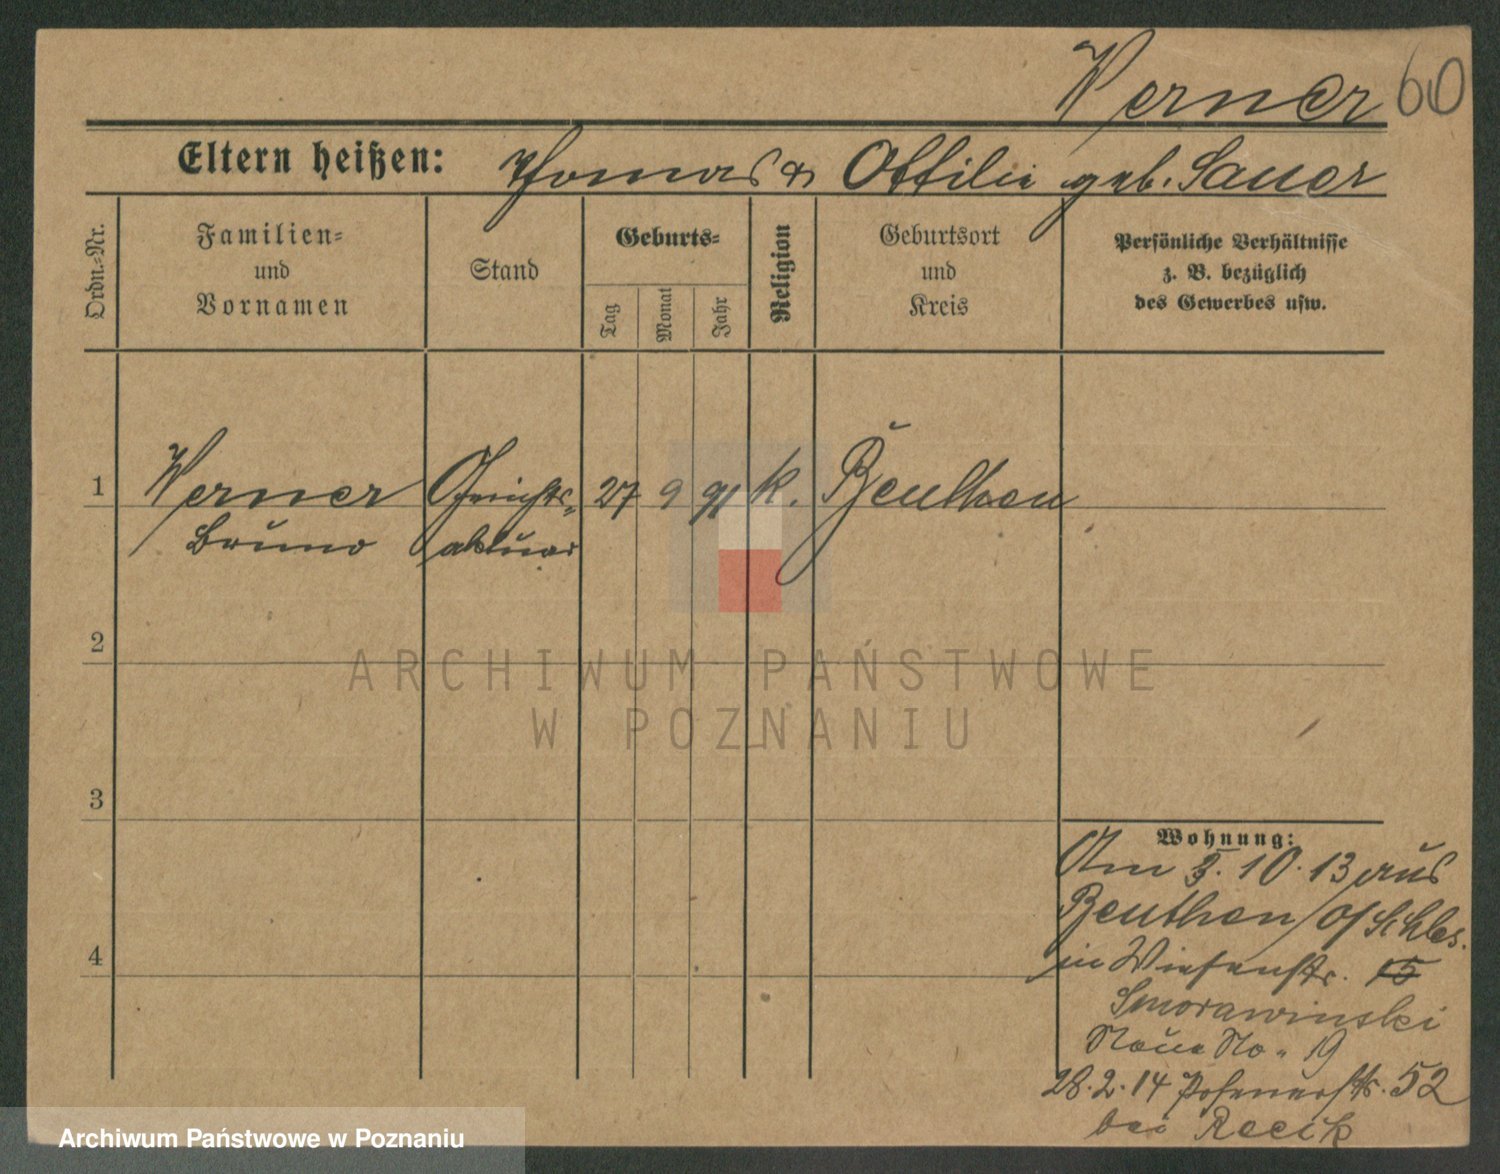 Werner 60
Eltern heißen: Thomas & Ottilie geb. Sauer
Ordn.-Nr.
Familien-
und
Vornamen
Stand
Geburts-
Tag
Monat
Jahr
Religion
Geburtsort
und
Kreis
Persönliche Verhältnisse
z. B. bezüglich
des Gewerbes usw.
1 Werner Gerichts- 27 9 91 k. Beuthen
Bruno aktuar
2
3
4
Wohnung:
Am 3. 10. 13 aus
Beuthen O/Schles.
in Wiesenstr. 15
Smorawinski
Neue No. 19
28.2.14 Posenerstr. 52
bei Recik
ARCHIWUM PAŃSTWOWE
W POZNANIU
Archiwum Państwowe w Poznaniu